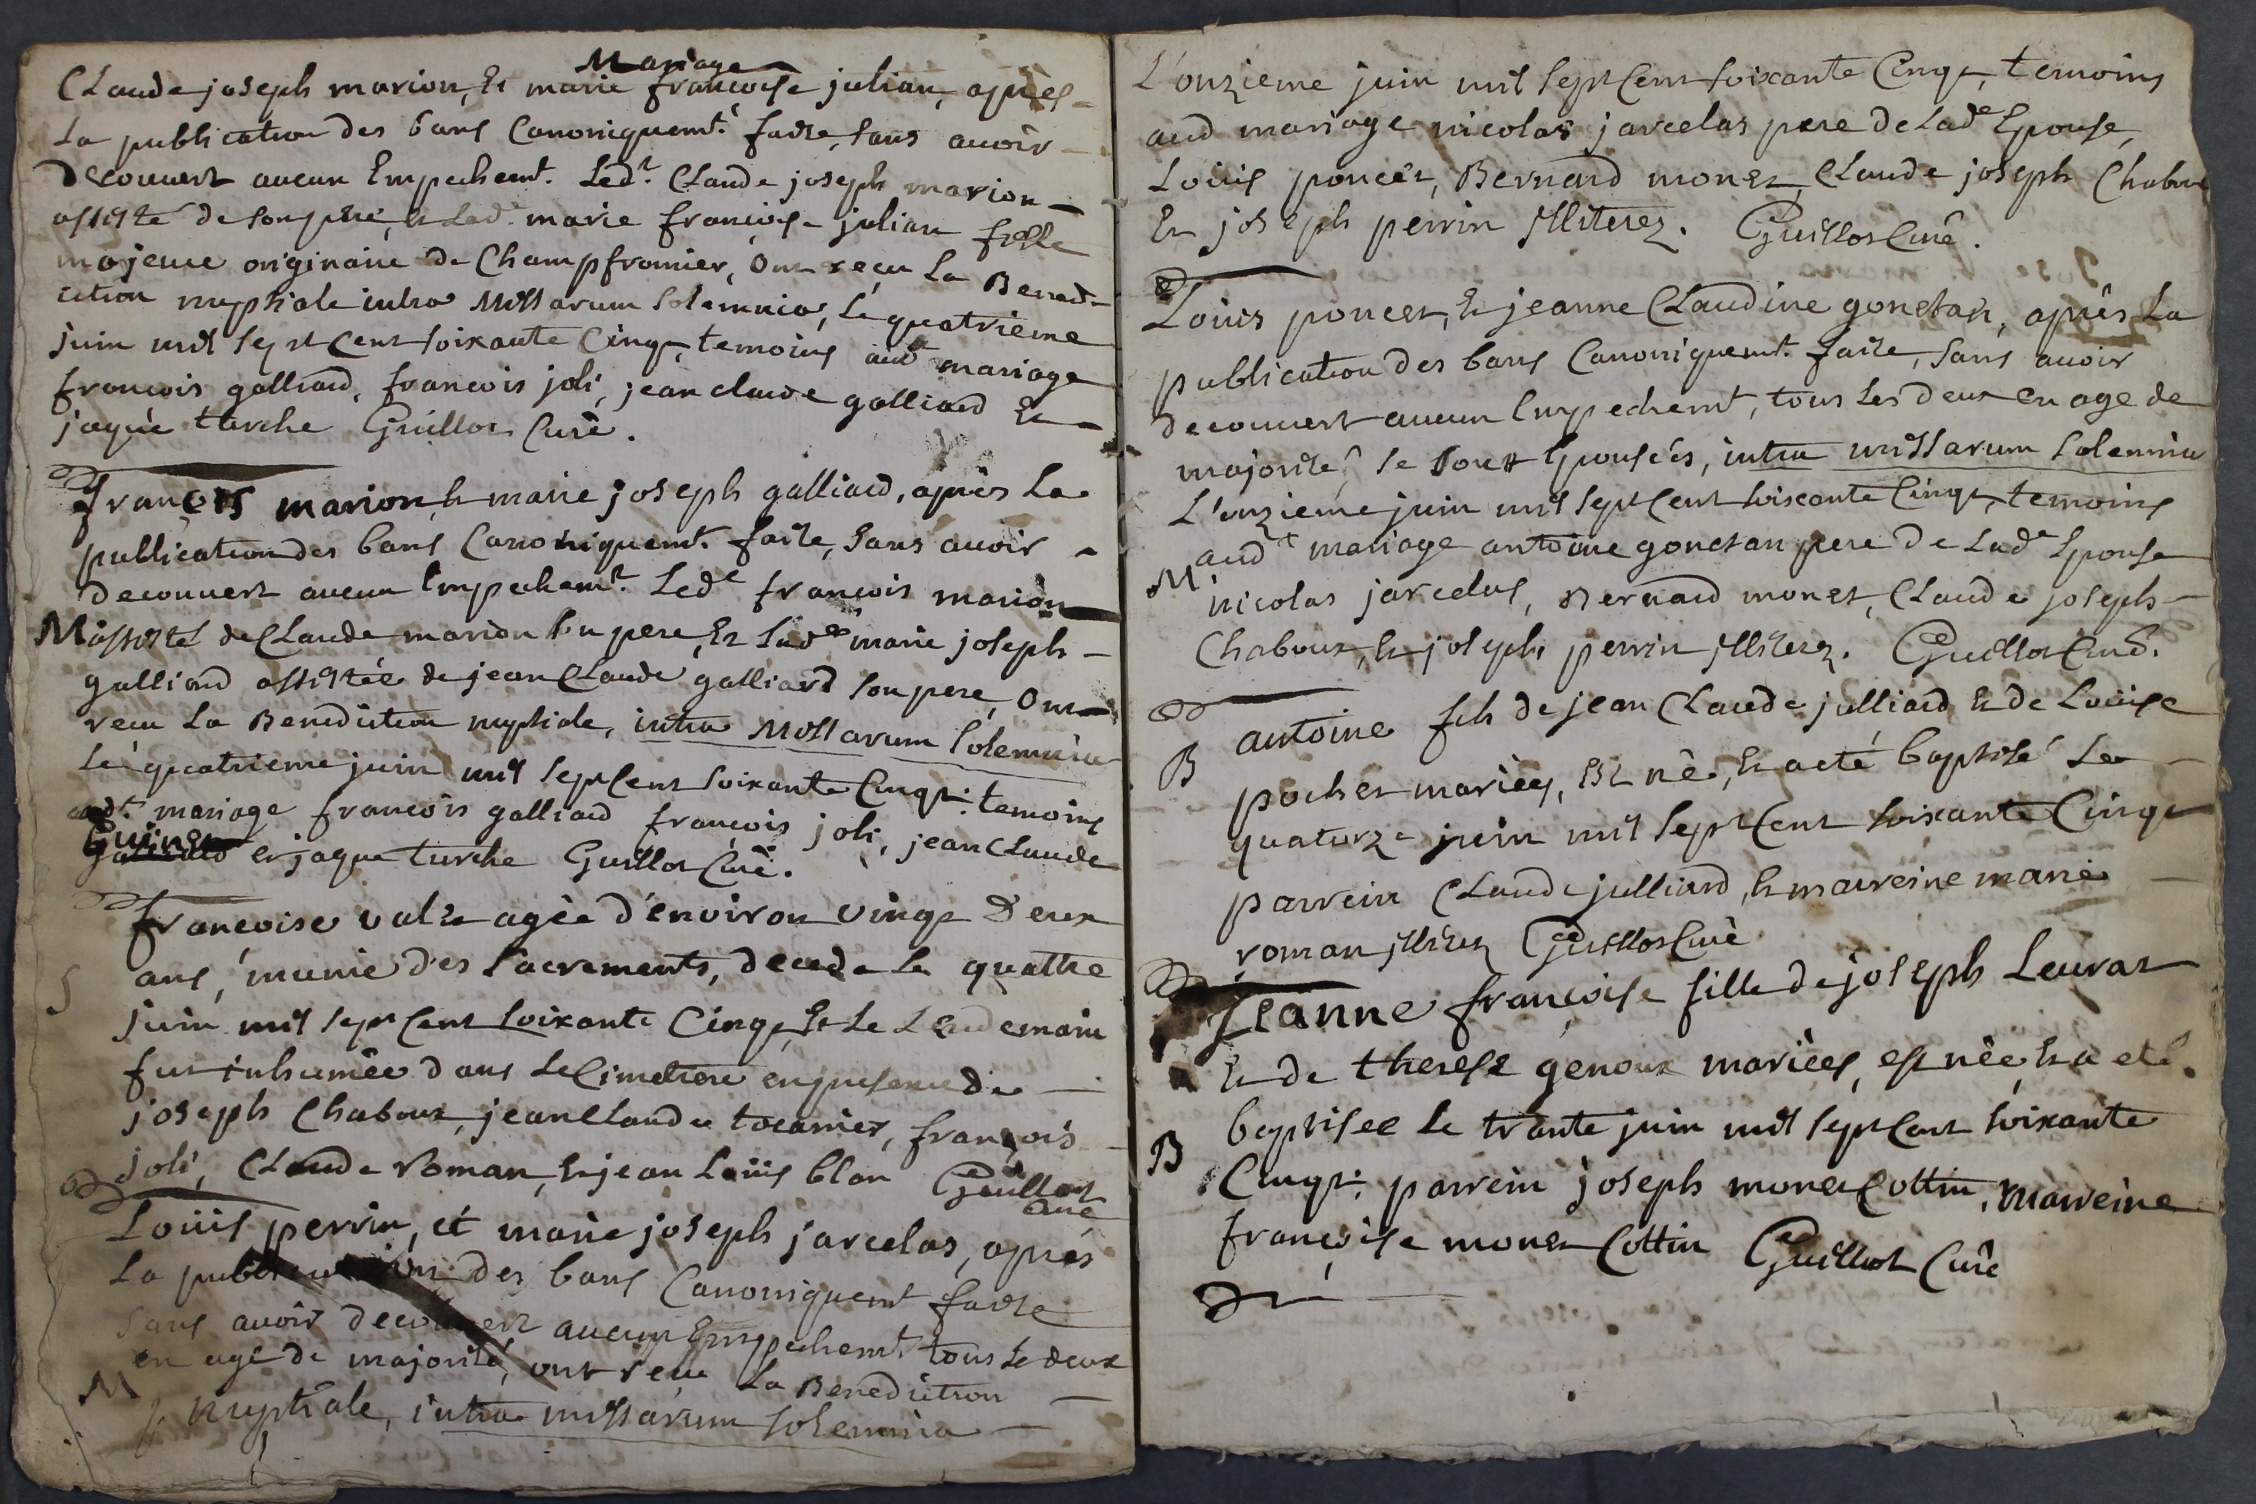 Mariage
Claude joseph marion, Et marie françoise julian, après
La publication des bans Canoniquemt. faite, sans avoir
Decouvert aucun Empechemt. Ledt. Claude joseph marion
assisté de son pere, et Lade. marie françoise julian fille
majeure originaire de Champfromier, Ont reçu La Bened-
iction nuptiale intra Missarum Solemnia, Le quatrieme
juin mil sept Cent soixante Cinq, temoins audt mariage
françois galliard, françois joli, jean claude galliard Et
jaque turche Guillot Curé.
François marion, Et marie joseph galliard, après La
publication des bans Canoniquemt. faite, sans avoir
decouvert aucun Empechemt. Ledt françois marion
M assisté de Claude marion son pere, Et Lade marie joseph
galliard assistée de jean Claude galliard son pere, Ont
recu La Benediction nuptiale, intra Missarum Solemnia
Le quatrieme juin mil sept Cent soixante Cinq: temoins
audt. mariage françois galliard françois joli, jean Claude
Guinet et jaque turche Guillot Curé.
francoise valet agée d'environ vingt Deux
S ans, munie des Sacrements, decede Le quattre
juin mil sept Cent soixante Cinq, Et Le Lendemain
fut inhumée dans Le Cimetiere en presence de
joseph Chaboux, jean Claude tocanier, françois
joli, Claude Roman, Et jean Loüis blan Guillot
Curé
Loüis perrin, et marie joseph jarcelas, après
La publication des bans Canoniquemt faite
Sans avoir decouvert aucun Empechemt. tous Le deux
en age de majorité, ont recu La Benediction
M Nuptiale, intra missarum solemnia
L'onzieme juin mil sept Cent soixante Cinq, temoins
aud mariage nicolas jarcelas pere de Lade Epouse,
Loüis poncet, Bernard monet, Claude joseph Chaboux
Et joseph perrin jlliterez. Guillot Curé.
Loüis poncet, Et jeanne Claudine gonetan, après La
publication des bans Canoniquemt. faite, sans avoir
decouvert aucun Empechemt, tous Les deux en age de
majorité, se sont Epousées, intra missarum solemnia
L'onzieme juin mil sept Cent soixante Cinq, temoins
audt mariage antoine gonetan pere de Lade Epouse
M nicolas jarcelas, Bernard monet, Claude joseph
Chaboux, Et joseph perrin jlliterez. Guillot Curé.
antoine fils de jean Claude julliard Et de Loüise
B pochet mariées, Est né, Et a eté baptisé Le
quatorze juin mil sept Cent soixante Cinq
parrein Claude julliard, Et marreine marie
roman jlliterez Guillot Curé
Jeanne françoise fille de joseph Leurat
Et de therese genoux mariées, est née, Et a eté
B baptisee Le trante juin mil sept Cent soixante
Cinq: parrein joseph monet Cottin, marreine
françoise monet Cottin Guillot Curé